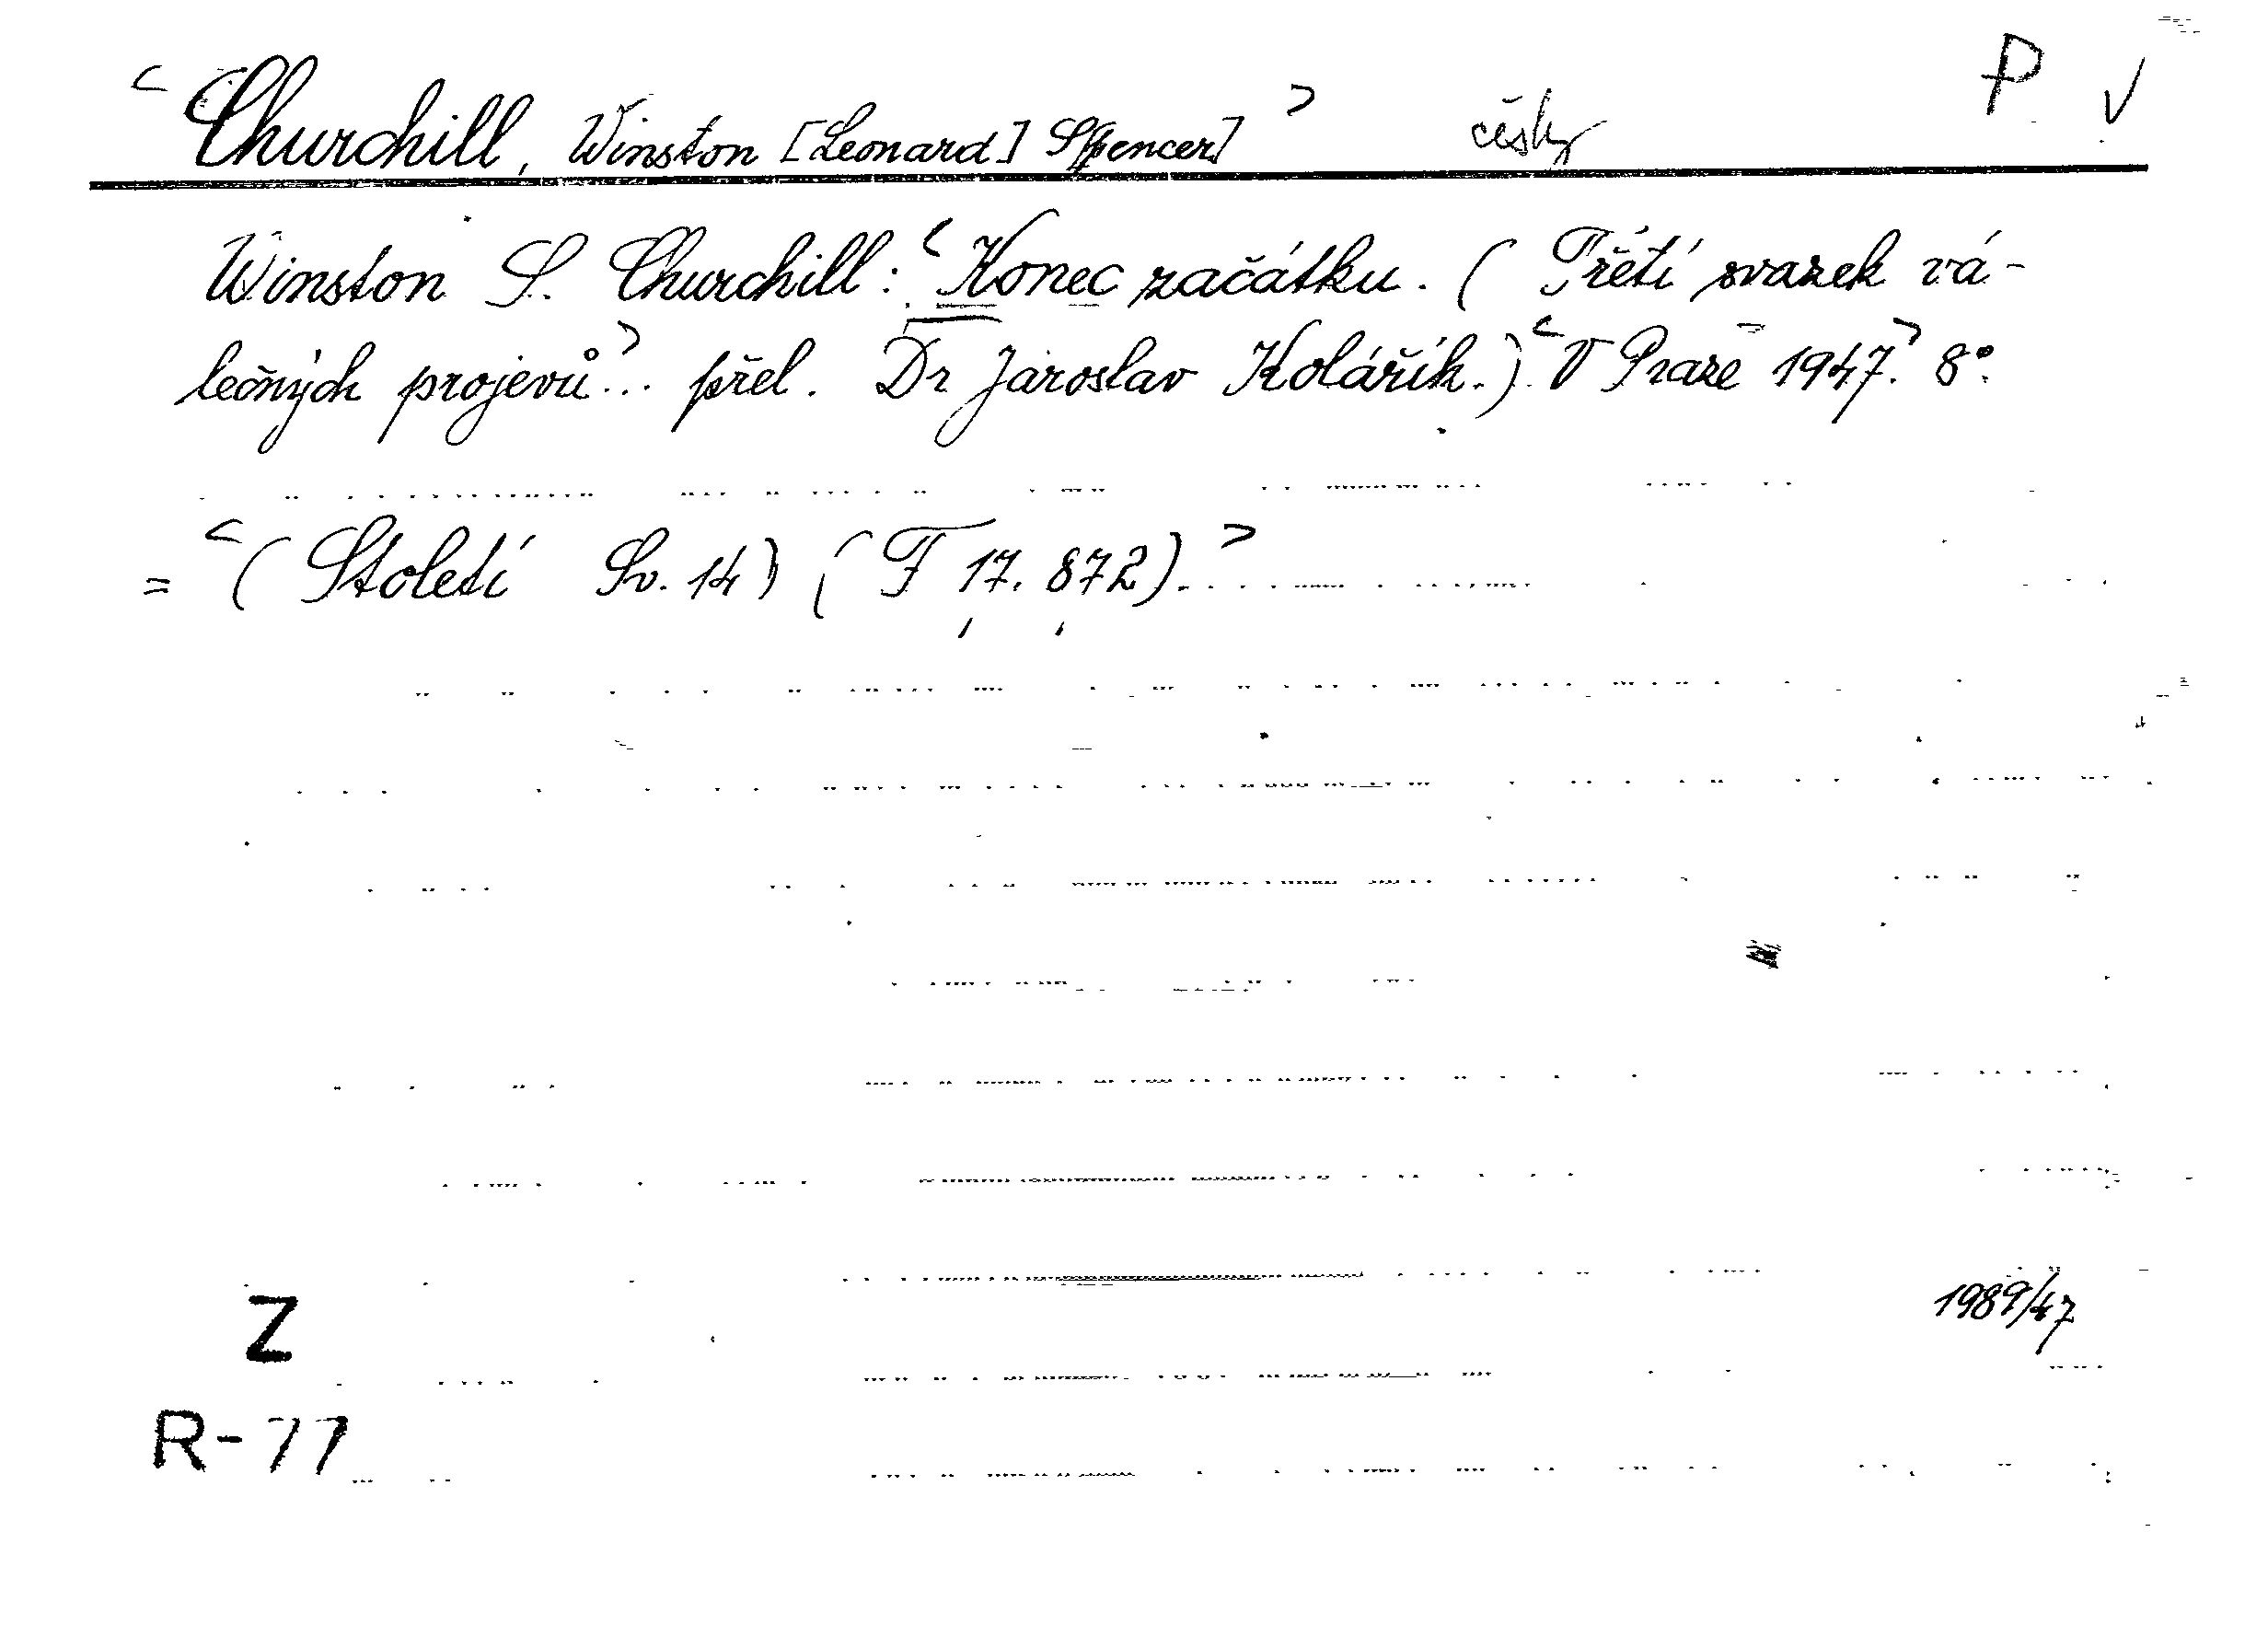 < Churchill, Winston [Leonard] S[pencer] > česky P V
Winston S. Churchill: < Konec začátku. (Třetí svazek vá-
lečných projevů > ... přel. Dr Jaroslav Kolářík.) < V Praze 1947. > 8°.
= < (Století Sv. 14) (F 17.872). >
Z 1989/47
R-77